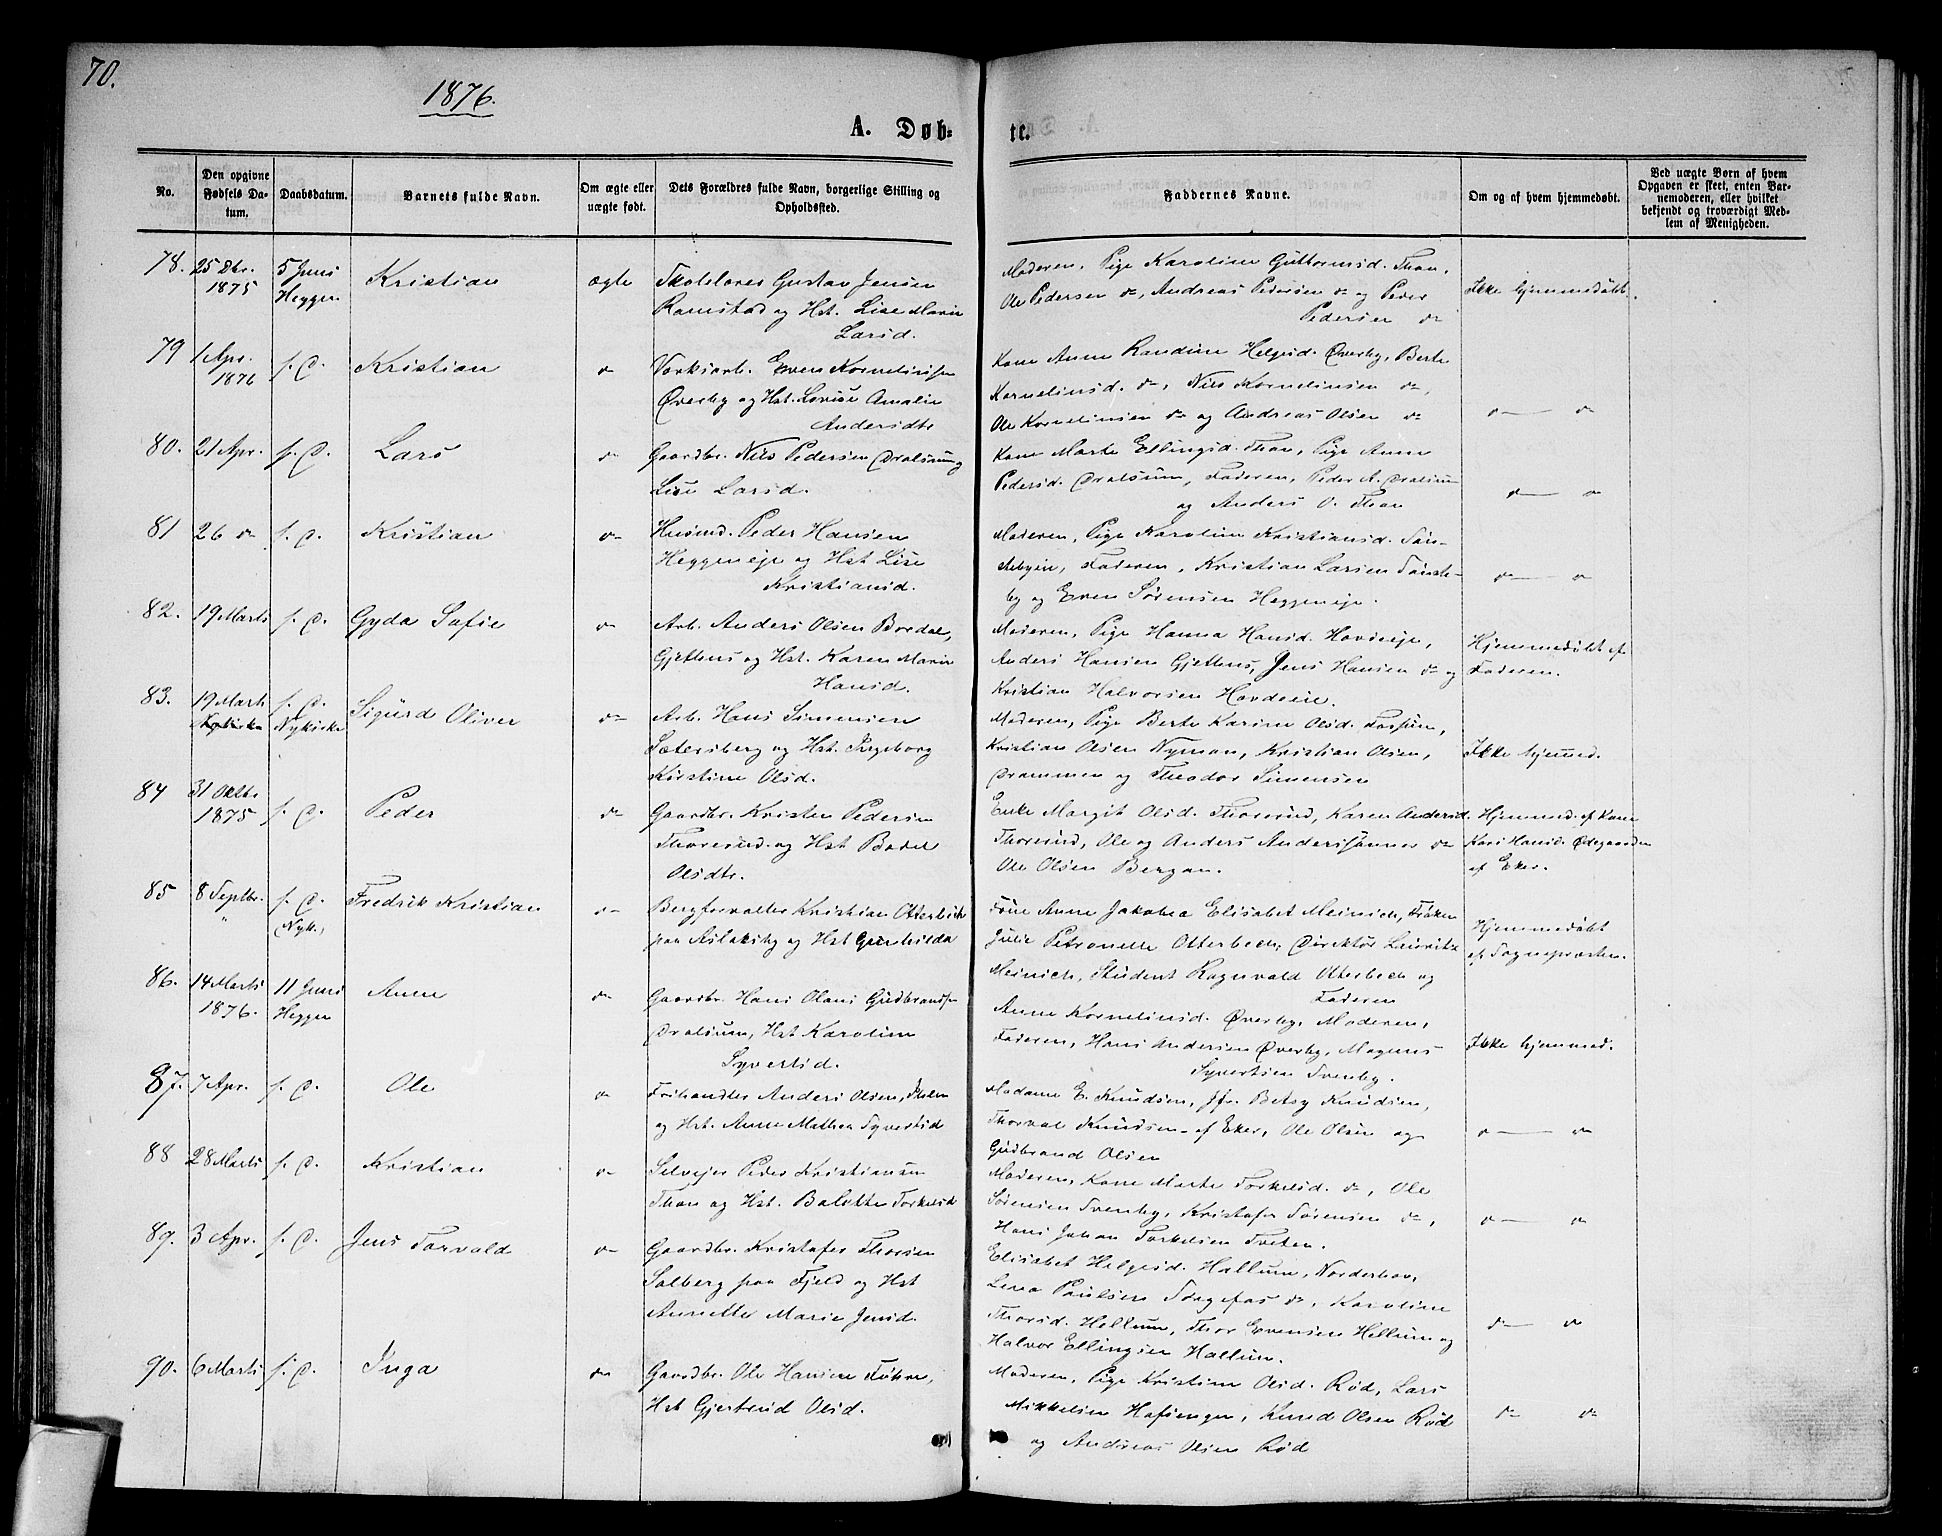 70.
1876.
A. Døb-
te.
No.
Den opgivne Fødsels Datum.
Daabsdatum.
Barnets fulde Navn.
Om ægte eller uægte født.
Dets Forældres fulde Navn, borgerlige Stilling og Opholdssted.
Faddernes Navne.
Om og af hvem hjemmedøbt.
Ved uægte Børn af hvem Opgaven er skeet, enten Barnemoderen, eller hvilket bekjendt og troværdigt Medlem af Menigheden.
78. 25 Dbr. 1875 5 Juni Heggen Kristian ægte Skolelærer Gustav Jensen
Ramstad og Hst. Lise Marie
Larsd.
Moderen, Pige Karoline Guttormsd. Thon,
Ole Pedersen do, Andreas Pedersen do og Peder
Pedersen do
Ikke hjemmedøbt.
79 1 Apr. 1876 s. D. Kristian do Værksarb. Even Kornelinsen
Øverby og Hst. Lovise Amalie
Andersdtr
Kone Anne Randine Helgesd. Øverby, Berte
Kornelinsd. do, Nils Kornelinsen do,
Ole Kornelinsen do og Andreas Olsen do
do do
80. 21 Apr. s. D. Lars do Gaardbr. Nils Pedersen Dralsum og
Lise Larsd.
Kone Marte Ellingsd. Thon, Pige Anne
Pedersd. Dralsum, Faderen, Peder A. Dralsum
og Anders O. Thon
do do
81 26 do s. D. Kristian do Husmd. Peder Hansen
Heggeneje og Hst Lise
Kristiansd.
Moderen, Pige Karoline Kristiansd.
Faderen, Kristian Larsen
by og Even Sørensen Heggeneje.
do do
82. 19 Marts s. D. Gyda Sofie do Arb. Anders Olsen Bordal,
Gjettens og Hst. Karen Marie
Hansd.
Moderen, Pige Hanna Hansd. Hovdeeje,
Anders Hansen Gjettens, Jens Hansen do og
Kristian Halvorsen Hovdeeie.
Hjemmedøbt af
Faderen.
83. 19 Marts s. D. Nykirke Sigurd Oliver do Arb. Hans Simensen
Sætersberg og Hst. Ingeborg
Kirstine Olsd.
Moderen, Pige Berte Karine Olsd. Fossum,
Kristian Olsen Nyman, Kristian Olsen,
Drammen og Theodor Simensen
Ikke hjemmed.
84 31 Oktbr. 1875 s. D. Peder do Gaardbr. Kristen Pedersen
Thoresrud og Hst Bodel
Olsdtr.
Enke Margit Olsd. Thoresrud, Karen Andersd.
Thoresrud, Ole og Anders Anderssønner do
Ole Olsen Bergan.
Hjemmed. af Kone
Kari Hansd. Ødegaarden
af Eker.
85 8 Septbr. " s. D. (Nyk.) Fredrik Kristian do Bergforvalter Kristian Otterbech
paa Aslaksby og Hst Gunhilda
Frue Anne Jakobea Elisabet Meinich, Frøken
Julie Petronelle Otterbech, Direktør Lauritz
Meinich, Student Ragnvald Otterbech og
Faderen
Hjemmedøbt
af Sognepræsten.
86. 14 Marts 1876. 11 Juni Heggen Anne do Gaardbr. Hans Olaus Gudbrandsen
Dralsum, Hst Karoline
Syvertsd.
Anne Kornelinsd. Øverby, Moderen,
Faderen, Hans Andersen Øverby, Magnus
Syvertsen Svenby.
Ikke hjemmed.
87. 7 Apr. s. D. Ole do Frihandler Anders Olsen,
og Hst. Anne Mathea Syvertsd
Madame E. Knudsen, Jfr. Betsy Knudsen,
Thorval Knudsen af Eker, Ole Olsen og
Gudbrand Olsen
do do
88 28 Marts s. D. Kristian do Selvejer Peder Kristiansen
Thon og Hst. Bolette Torkelsd
Moderen, Kone Marte Torkelsd. do, Ole
Sørensen Svenby, Kristofer Sørensen do,
Hans Johan Torkelsen Tveten.
do do
89. 3 Apr. s. D. Jens Torvald do Gaardbr. Kristofer Thorsen
Solberg paa Fjeld og Hst
Annette Marie Jensd.
Elisabet Helgesd. Hallum, Norderhov,
Lena Paulsen do, Karoline
Thorsd. Hellum, Thor Evensen Hellum og
Halvor Ellingsen Hallum.
do do
90. 6 Marts s. D. Inga do Gaardbr. Ole Hansen
Hst Gjertrud Olsd.
Moderen, Pige Kristine Olsd. Rød, Lars
Mikkelsen Hafsengen, Knud Olsen Rød
og Andreas Olsen Rød
do do